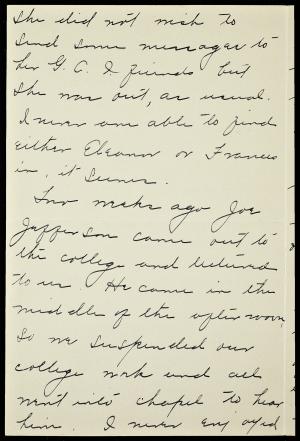 she did not wish to
send some messages to
her G. C. I friends but
she was out, as usual.
I never am able to find
either Eleanor or Frances
in, it seems.
Two weeks ago Joe
Jefferson came out to
the college and lectured
to us. He came in the
middle of the afternoon,
so we suspended our
college work and all
went into chapel to hear
him. I never enjoyed